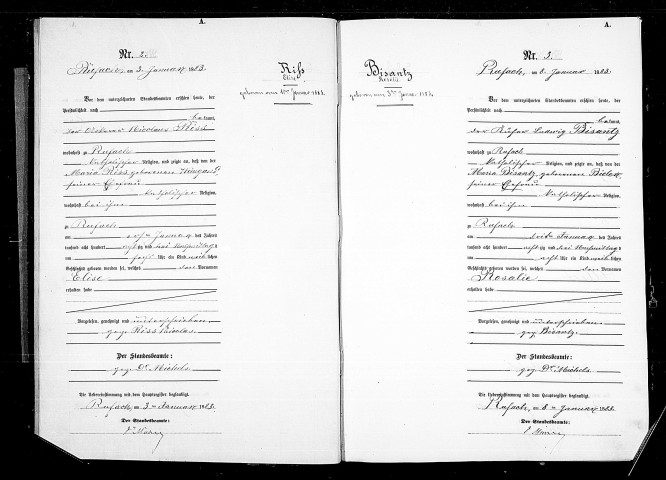 A.
Nr. 2
Rufach, am 3. Januar 1883.
Riss
Elise
geboren am 1ten Januar 1883.
Vor dem unterzeichneten Standesbeamten erschien heute, der
Persönlichkeit nach
bekannt,
der Nicolaus Riss
wohnhaft zu Rufach
katholischer Religion, und zeigte an, daß von der
Maria Riss geborenen
seiner Ehefrau
katholischer Religion,
wohnhaft bei ihm
zu Rufach
am Januar des Jahres
tausend acht hundert achtzig und drei Vormittags
um Uhr ein Kind weiblichen
Geschlechts geboren worden sei, welches den Vornamen
Elise
erhalten habe
Vorgelesen, genehmigt und unterschrieben
gez. Riss Nicolas
Der Standesbeamte:
gez. Dr. Michels
Die Uebereinstimmung mit dem Hauptregister beglaubigt.
Rufach, am 3. Januar 1883.
Der Standesbeamte:
A.
Nr. 3.
Rufach, am 8. Januar 1883.
Bisantz
Rosalie
geboren am Januar 1883.
Vor dem unterzeichneten Standesbeamten erschien heute, der
Persönlichkeit nach
bekannt,
der Küfer Ludwig Bisantz
wohnhaft zu Rufach
katholischer Religion, und zeigte an, daß von der
Maria Bisantz, geborenen
seiner Ehefrau
katholischer Religion,
wohnhaft bei ihm
zu Rufach
am Januar des Jahres
tausend acht hundert achtzig und drei Vormittags
um acht Uhr ein Kind weiblichen
Geschlechts geboren worden sei, welches den Vornamen
Rosalie
erhalten habe
Vorgelesen, genehmigt und unterschrieben
gez. Bisantz
Der Standesbeamte:
gez. Dr. Michels
Die Uebereinstimmung mit dem Hauptregister beglaubigt.
Rufach, am 8. Januar 1883.
Der Standesbeamte: